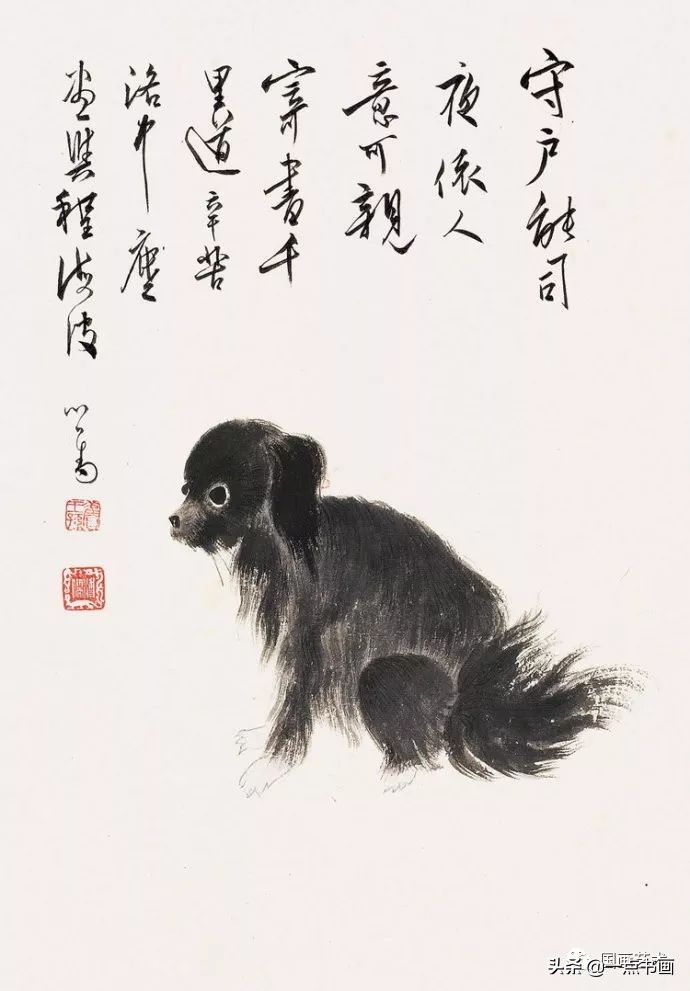 守户能司
夜依人
意可親
寄書千
里道辛苦
洛中塵
畫與程海波
心畬
国画艺术
头条 @一点书画